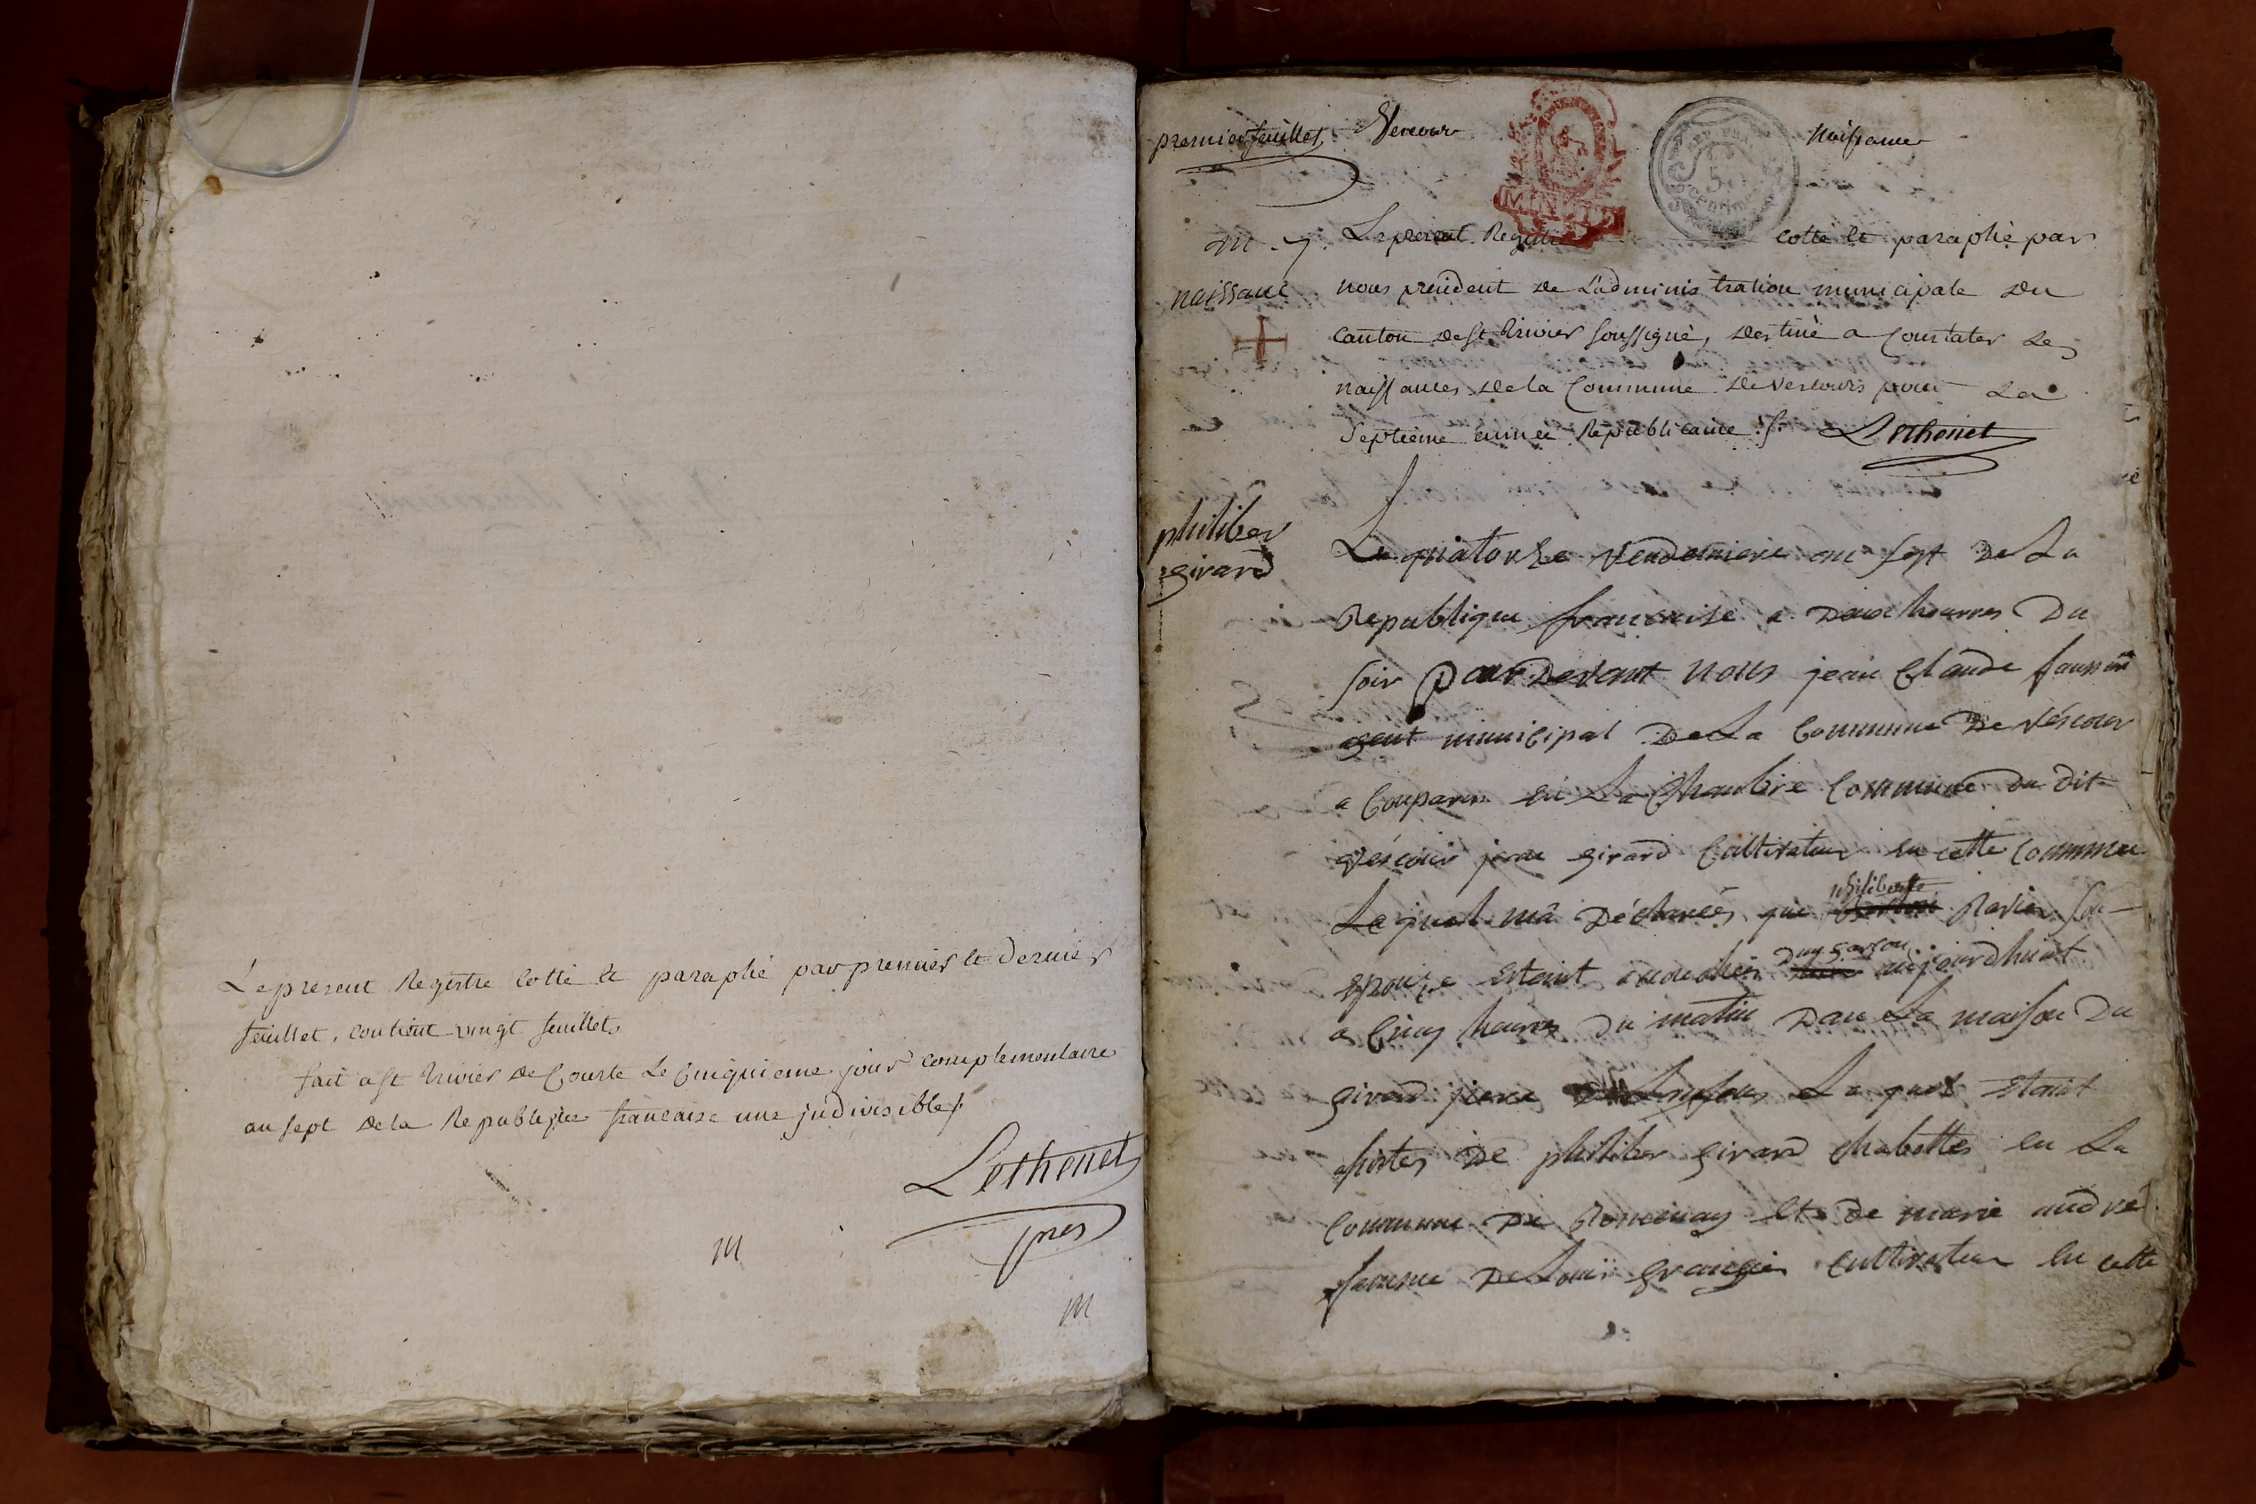 Le present Registre cotté et paraphé par premier et dernier
feuillet, contient vingt feuillets
fait a St trivier de Courte le Cinquieme jour complementaire
an sept de la Republique francaise une indivisible ./.
Lethenet
pres
M
M
premier feuillet Vercour Naissance
MINUTE
M. 7.
naissance
Le present Registre cotté et paraphé par
nous president de L'administration municipale du
canton de St trivier soussigné, destiné a Constater les
naissances de la Commune de vescours pour La
Septieme année Republicaine ./. Lethenet
philiber
girard
Le quatorze vendemiere an sept De La
Republique francaise a deux heures Du
soir pardevant nous jean Claude
agent municipal De La Commune De véscour
a Comparu en La Chambre Commune du dit
véscour jean girard Cultivateur en cette Commune
Lequel m'a Déclarés que philiberte Ravier son
epouze estant acouchés Dun garson aujourdhuit
a Cinq heures Du matin Dans La maison Du
girard Lequel etant
De philiber girard en La
Commune De Romenay et de marie andré
femme De Loui grangie Cultivateur en cette